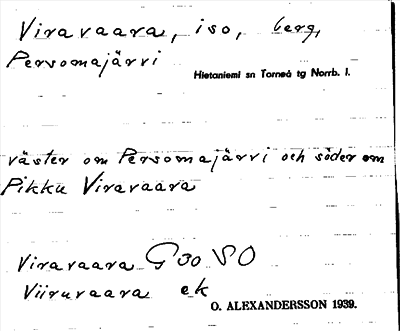 Viravaara, iso, berg,
Persomajärvi
Hietaniemi sn Torneå tg Norrb. l.
väster om Persomajärvi och söder om
Pikku Viravaara
Viravaara G30 SO
Viiruvaara ek
O. ALEXANDERSSON 1939.